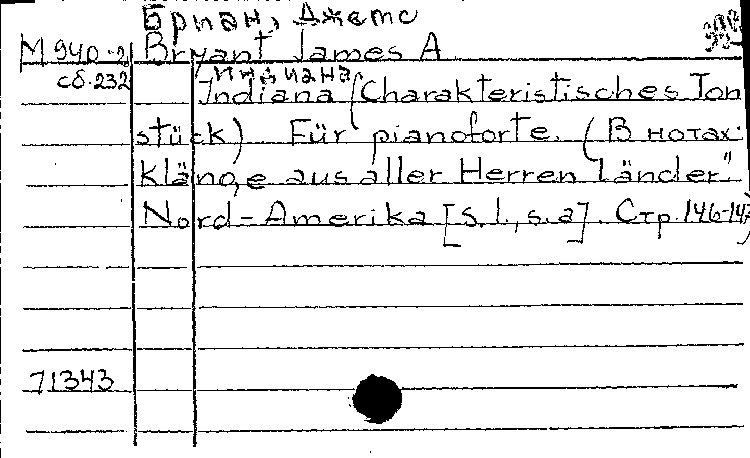 Бриан, Джемс
М 940-2 Bryant James A
сб.232 Индиана
Indiana (Charakteristisches Ton
stück) Für pianoforte. (В нотах:
Klänge aus aller Herren Länder"
Nord-Amerika [s.l., s.a]. Стр. 146-147
71343